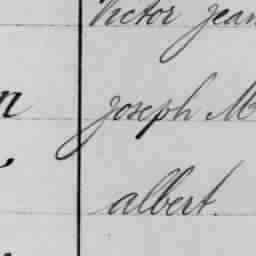 Victor Jean
Joseph M
albert.